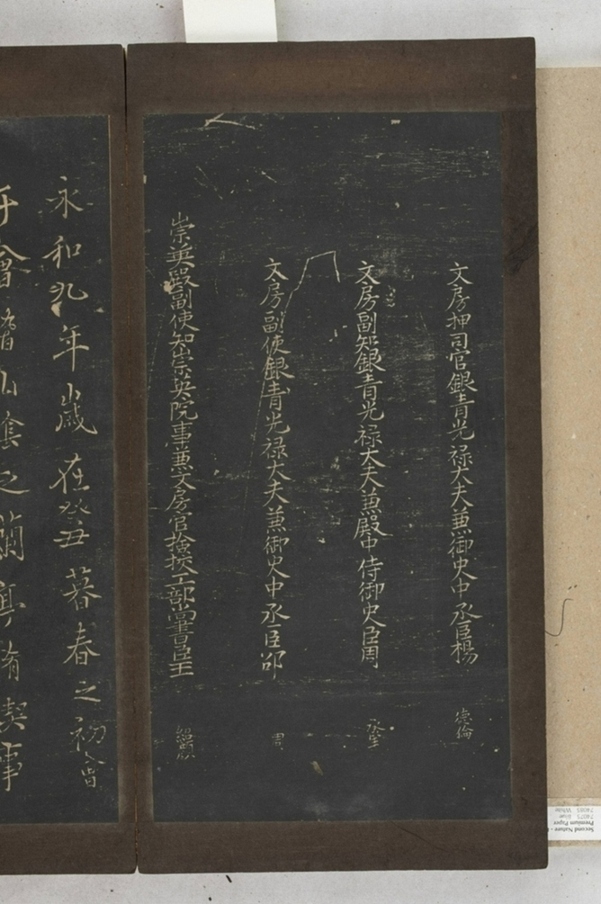 文房押司官銀青光禄大夫兼御史中丞臣楊
德倫
文房副知銀青光禄大夫兼殿中侍御史臣周
文房副使銀青光禄大夫兼御史中丞臣邵
周
崇英殿副使知崇英院事兼文房官檢校工部尚書臣王
紹顏
永和九年歲在癸丑暮春之初會
于會稽山陰之蘭亭脩禊事
Second Nature
Premium Paper
74075 Blue
74081 White